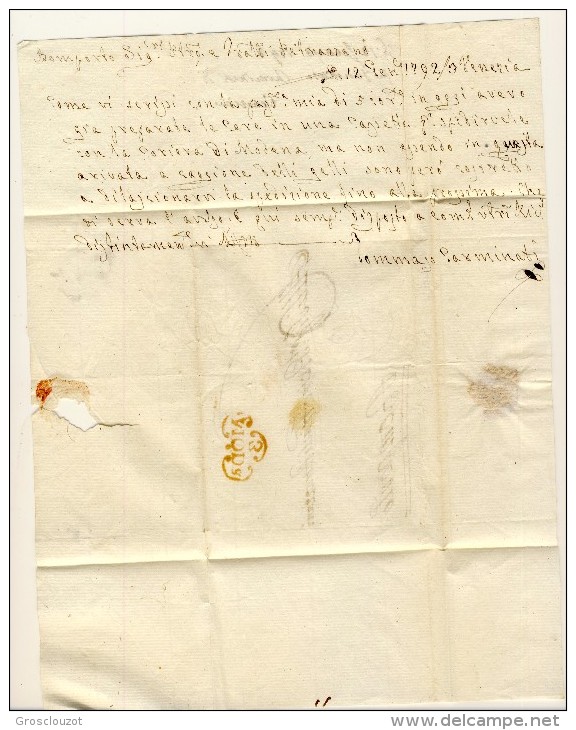 Bomporto Sig.ri
li 12 Gen.º 1792/3 Venezia
Come vi scrissi con la pag.ta mia di 5 cor.te in oggi avevo
gia preparata le Cere in una Cassetta p. spedirvele
con la Coriera di Modena, ma non essendo in questa
arivata a caggione delli gelli sono però costretto
a dilazionarvi la spedizione fino alla prossima. Che
vi serva d'aviso e qui sempre disposto a
distintamen.te
Tommaso Carminati
3
MODA
Grosclouzot
www.delcampe.net